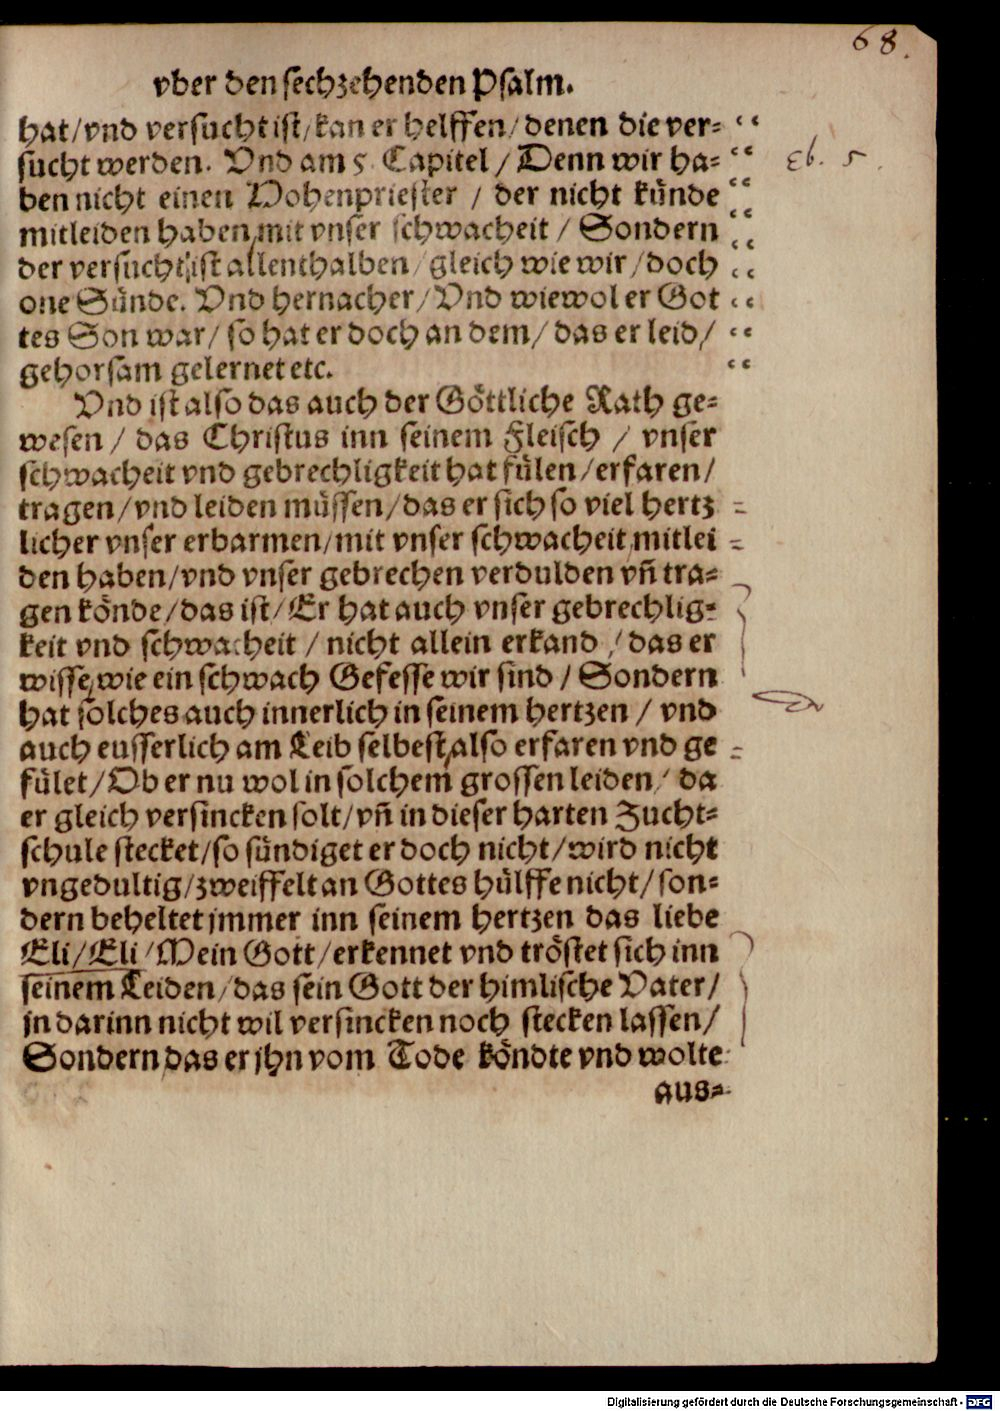 68.
vber den sechzehenden Psalm.
hat/vnd versucht ist/kan er helffen/denen die ver⸗
sucht werden. Vnd am 5. Capitel/Denn wir ha⸗
Eb. 5.
ben nicht einen Hohenpriester / der nicht künde
mitleiden haben, mit vnser schwacheit / Sondern
der versucht ist allenthalben/gleich wie wir/doch
one Sünde. Vnd hernacher/Vnd wiewol er Got
tes Son war/ so hat er doch an dem/ das er leid/
gehorsam gelernet etc.
Vnd ist also das auch der Göttliche Rath ge⸗
wesen / das Christus inn seinem Fleisch / vnser
schwacheit vnd gebrechligkeit hat fülen/erfaren/
tragen/vnd leiden müssen/das er sich so viel hertz
licher vnser erbarmen/mit vnser schwacheit mitlei
den haben/vnd vnser gebrechen verdulden vñ tra⸗
gen könde/das ist/Er hat auch vnser gebrechlig⸗
keit vnd schwacheit / nicht allein erkand / das er
wisse, wie ein schwach Gefesse wir sind / Sondern
hat solches auch innerlich in seinem hertzen / vnd
auch eusserlich am Leib selbest, also erfaren vnd ge
fület/Ob er nu wol in solchem grossen leiden/ da
er gleich versincken solt/vñ in dieser harten Zucht⸗
schule stecket/so sündiget er doch nicht/wird nicht
vngedultig/zweiffelt an Gottes hülffe nicht/son⸗
dern beheltet jmmer inn seinem hertzen das liebe
Eli/Eli/Mein Gott/erkennet vnd tröstet sich inn
seinem Leiden/das sein Gott der himlische Vater/
jn darinn nicht wil versincken noch stecken lassen/
Sondern, das er jhn vom Tode köndte vnd wolte
aus⸗
Digitalisierung gefördert durch die Deutsche Forschungsgemeinschaft - DFG